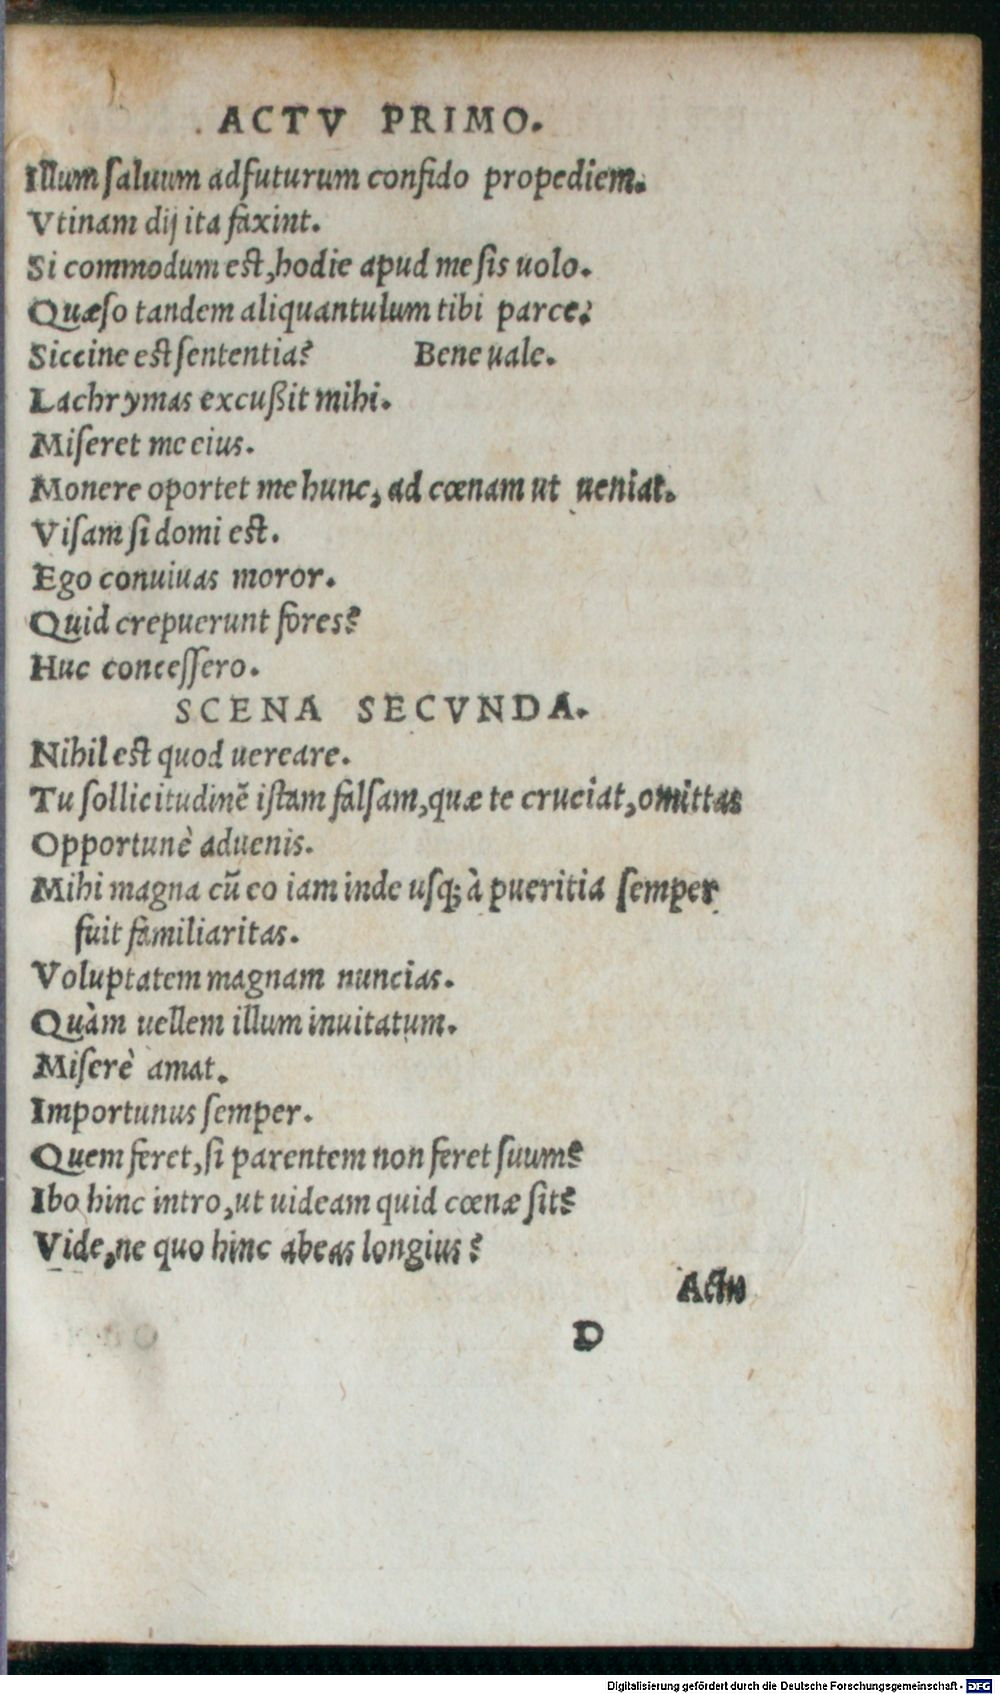 ACTV PRIMO.
Illum saluum adfuturum confido propediem.
Vtinam dij ita faxint.
Si commodum est, hodie apud me sis uolo.
Quæso tandem aliquantulum tibi parce:
Siccine est sententia? Bene uale.
Lachrymas excußit mihi.
Miseret me eius.
Monere oportet me hunc, ad cœnam ut ueniat.
Visam si domi est.
Ego conuiuas moror.
Quid crepuerunt fores?
Huc concessero.
SCENA SECVNDA.
Nihil est quod uereare.
Tu sollicitudinẽ istam falsam, quæ te cruciat, omittas
Opportunè aduenis.
Mihi magna cũ eo iam inde usq; à pueritia semper
fuit familiaritas.
Voluptatem magnam nuncias.
Quàm uellem illum inuitatum.
Miserè amat.
Importunus semper.
Quem feret, si parentem non feret suum?
Ibo hinc intro, ut uideam quid cœnæ sit?
Vide, ne quo hinc abeas longius?
Actu
D
Digitalisierung gefördert durch die Deutsche Forschungsgemeinschaft - DFG